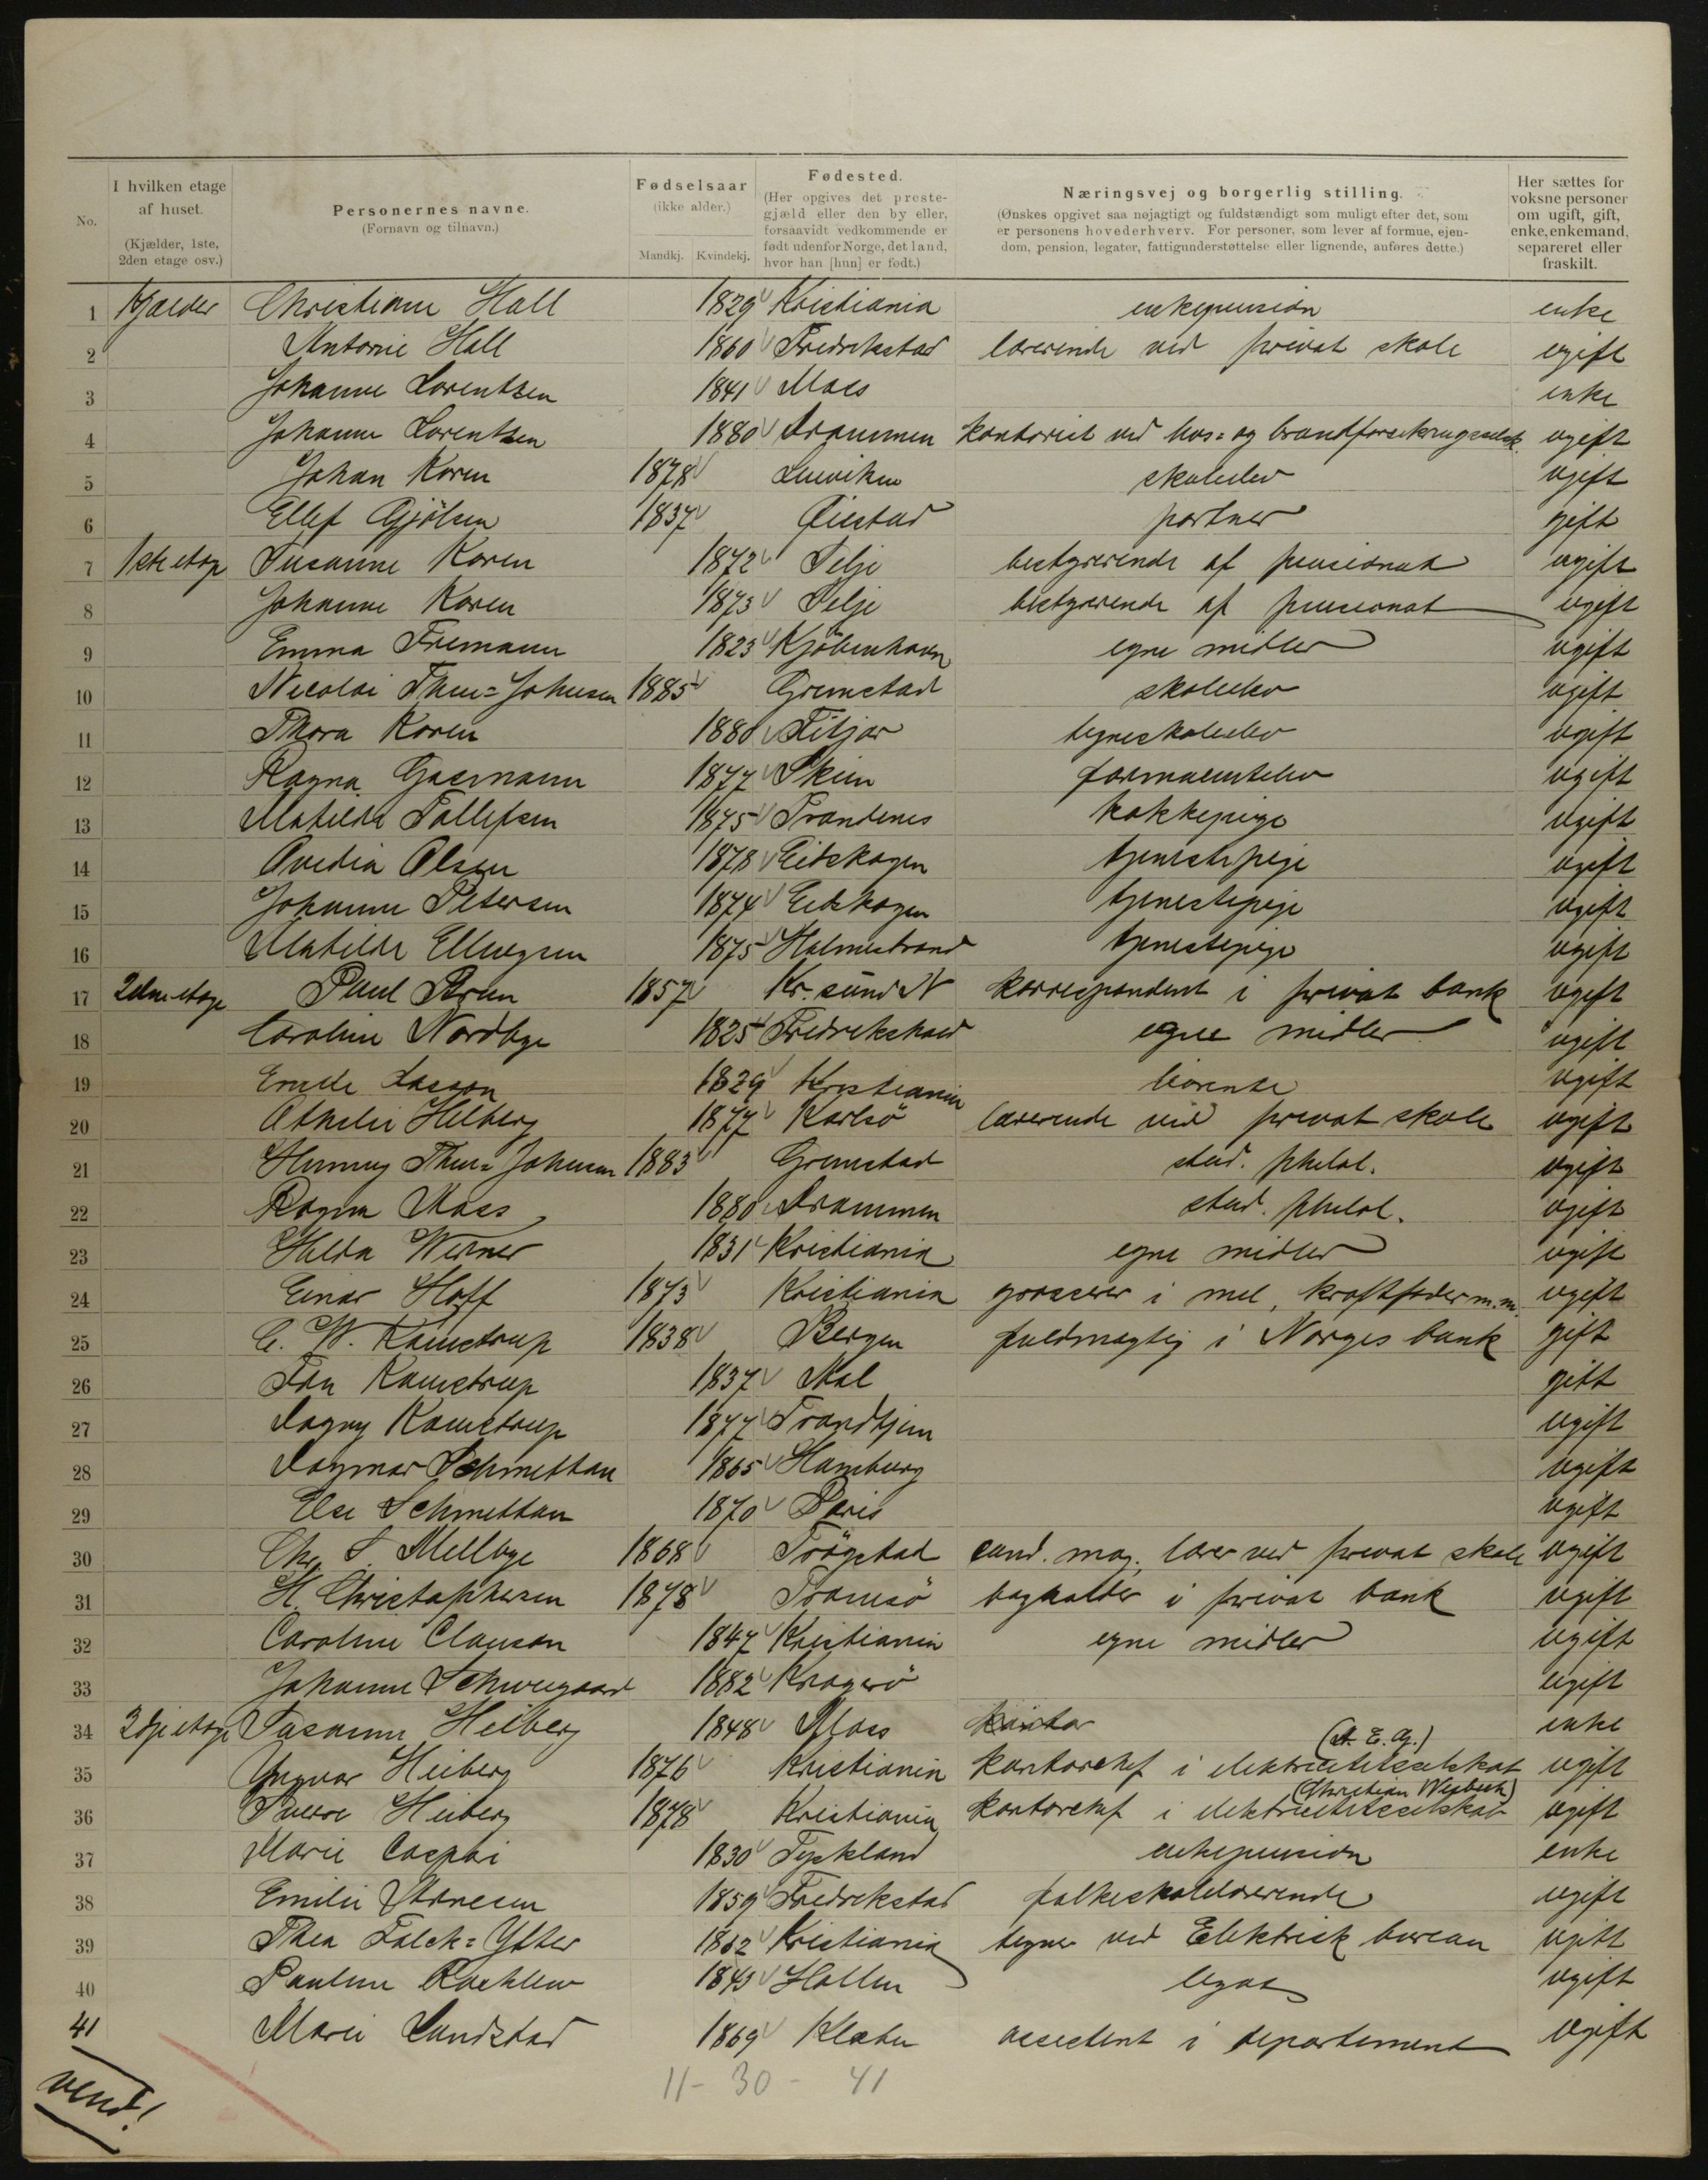 No.
I hvilken etage af huset.
(Kjælder, 1ste, 2den etage osv.)
Personernes navne.
(Fornavn og tilnavn.)
Fødselsaar
(ikke alder.)
Mandkj. Kvindekj.
Fødested.
(Her opgives det prestegjæld eller den by eller, forsaavidt vedkommende er født udenfor Norge, det land, hvor han [hun] er født.)
Næringsvej og borgerlig stilling.
(Ønskes opgivet saa nøjagtigt og fuldstændigt som muligt efter det, som er personens hovederhverv. For personer, som lever af formue, ejendom, pension, legater, fattigunderstøttelse eller lignende, anføres dette.)
Her sættes for voksne personer om ugift, gift, enke, enkemand, separeret eller fraskilt.
1 Kjælder Christiane Hall 1829 Kristiania enkepension enke
2 Antonie Hall 1860 Fredrikstad lærerinde ved privat skole ugift
3 Johanne Lorentzen 1841 Moss enke
4 Johanne Lorentzen 1880 Drammen kontorist ved hus= og brandforsikringsselsk. ugift
5 Johan Koren 1878 skoleelev ugift
6 Ellef Gjölsen 1837 Öiestad portner gift
7 1ste etage Susanne Koren 1872 Selje bestyrerinde af pensionat ugift
8 Johanne Koren 1873 Selje bestyrerinde af pensionat ugift
9 Emma Friemann 1823 Kjöbenhavn egne midler ugift
10 Nicolai Thue=Johnsen 1885 Grimstad skoleelev ugift
11 Thora Koren 1880 Fitjar tegneskoleelev ugift
12 Ragna Gasmann 1877 Skien farmaceutelev ugift
13 Mathilde Tollefsen 1875 Trondenes kokkepige ugift
14 Ovedia Olsen 1878 Eidskogen tjenestepige ugift
15 Johanne Petersen 1874 Eidskogen tjenestepige ugift
16 Mathilde Ellingsen 1875 Holmestrand tjenestepige ugift
17 2den etage Paul Brun 1857 Kr.sund N korrespondent i privat bank ugift
18 Caroline Nordbye 1825 Fredrikshald egne midler ugift
19 Emilie Lasson 1829 Kristiania livrente ugift
20 Othelie Heiberg 1877 Karlsö lærerinde ved privat skole ugift
21 Henning Thue=Johnsen 1883 Grimstad stud. philol. ugift
22 Ragna Moss 1880 Drammen stud. philol. ugift
23 Hilda Werner 1831 Kristiania egne midler ugift
24 Einar Hoff 1873 Kristiania grosserer i mel, kraftfoder m.m. ugift
25 C. W. Kamstrup 1838 Bergen fuldmægtig i Norges bank gift
26 Kamstrup 1837 gift
27 Dagny Kamstrup 1877 Trondhjem ugift
28 Dagmar Schmettau 1865 Hamburg ugift
29 Else Schmettau 1870 Paris ugift
30 Chr. S. Mellbye 1868 Trögstad cand. mag. lærer ved privat skole ugift
31 H. Christophersen 1878 Tromsö bogholder i privat bank ugift
32 Caroline Clauson 1847 Kristiania egne midler ugift
33 Johanne Schweigaard 1882 Kragerö ugift
34 3dje etage Susanne Heiberg 1848 Moss enke
(A. E. G.)
35 Yngvar Heiberg 1876 Kristiania kontorchef i elektricitetsselskab ugift
(Christian Wisbech)
36 Sverre Heiberg 1878 Kristiania kontorchef i elektricitetsselskab ugift
37 Marie Caspari 1830 Tyskland enkepension enke
38 Emilie 1859 Fredrikstad folkeskolelærerinde ugift
39 Thea Falck=Ytter 1862 Kristiania tegner ved Elektrisk bureau ugift
40 Pauline 1843 Hollen legat ugift
41 Marie Lundstad 1869 Klæbu assistent i departement ugift
11- 30- 41
vend!